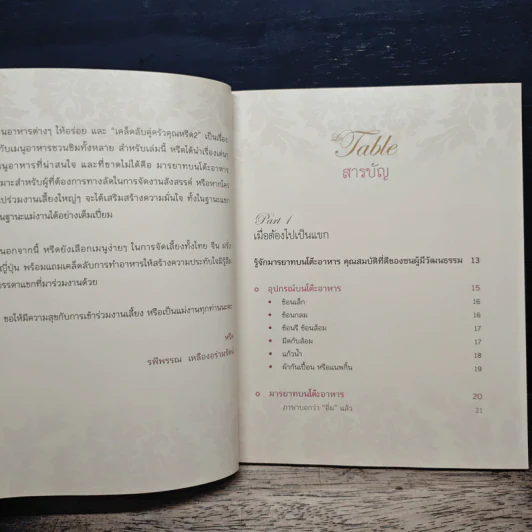 นอาหารต่างๆ ให้อร่อย และ "เคล็ดลับคู่ครัวคุณหรีด2" เป็นเรื่อง
กับเมนูอาหารชวนชิมทั้งหลาย สำหรับเล่มนี้ หรีดได้นำเรื่องเด่นๆ
นูอาหารที่น่าสนใจ และที่ขาดไม่ได้คือ มารยาทบนโต๊ะอาหาร
มาะสำหรับผู้ที่ต้องการทางลัดในการจัดงานสังสรรค์ หรือหากใคร
ปร่วมงานเลี้ยงใหญ่ๆ จะได้เสริมสร้างความมั่นใจ ทั้งในฐานะแขก
นฐานะแม่งานได้อย่างเต็มเปี่ยม
นอกจากนี้ หรีดยังเลือกเมนูง่ายๆ ในการจัดเลี้ยงทั้งไทย จีน ฝรั่ง
ญี่ปุ่น พร้อมแถมเคล็ดลับการทำอาหารให้สร้างความประทับใจมิรู้ลืม
รรดาแขกที่มาร่วมงานด้วย
ขอให้มีความสุขกับการเข้าร่วมงานเลี้ยง หรือเป็นแม่งานทุกท่านนะคะ
หรีด
รพีพรรณ เหลืองอร่ามรัตน์
Table
สารบัญ
Part 1
เมื่อต้องไปเป็นแขก
รู้จักมารยาทบนโต๊ะอาหาร คุณสมบัติที่ดีของชนผู้มีวัฒนธรรม 13
อุปกรณ์บนโต๊ะอาหาร 15
ช้อนเล็ก 16
ช้อนกลม 16
ช้อนรี ช้อนส้อม 17
มีดกับส้อม 17
แก้วน้ำ 18
ผ้ากันเปื้อน หรือแนพกิ้น 19
มารยาทบนโต๊ะอาหาร 20
ภาษาบอกว่า "อิ่ม" แล้ว 21